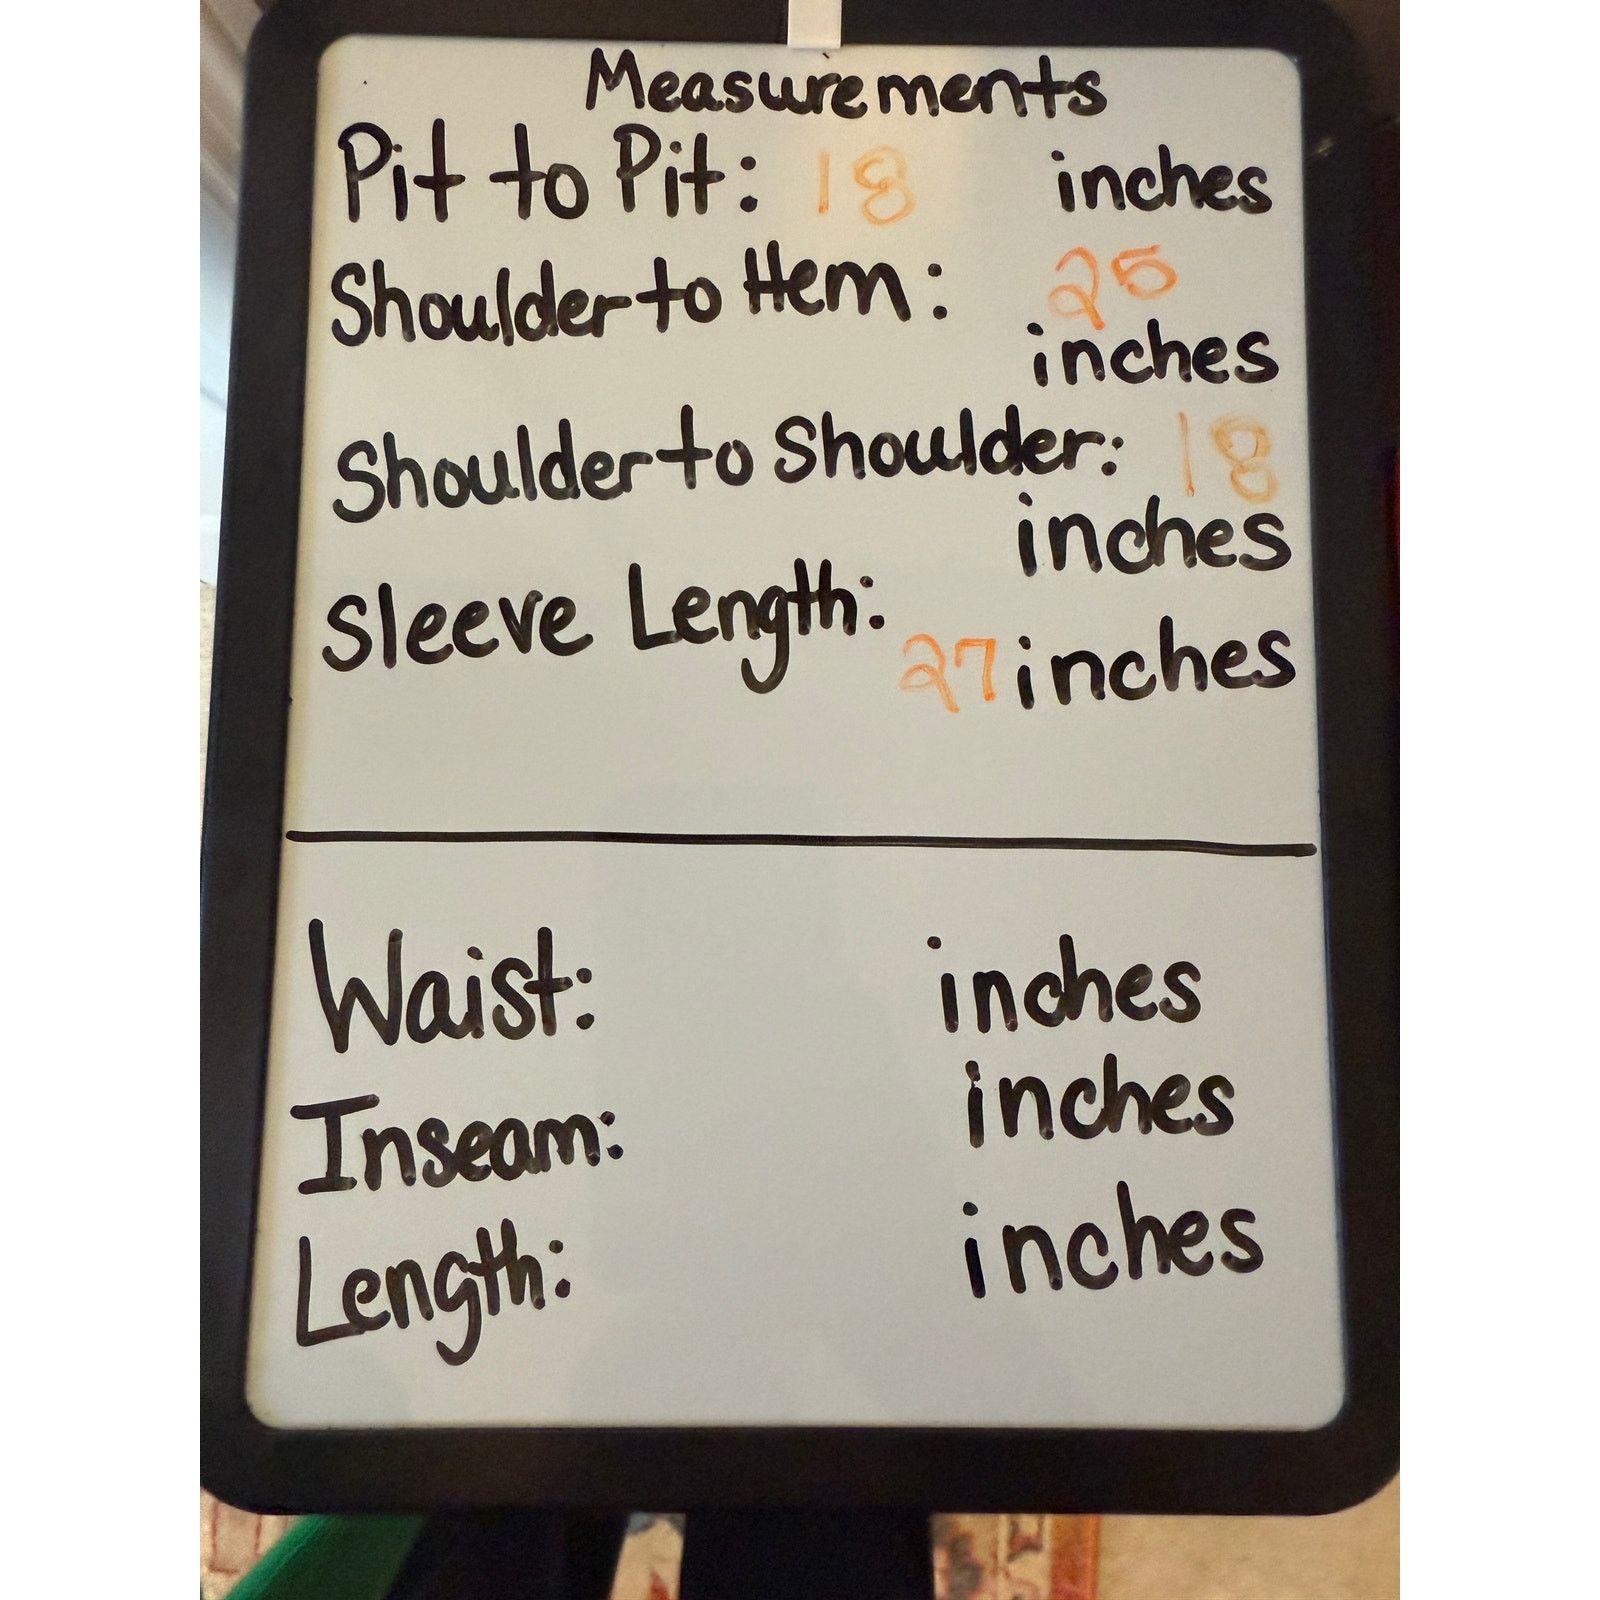 Measurements
Pit to Pit: 18 inches
Shoulder to Hem: 25
inches
Shoulder to Shoulder: 18
inches
Sleeve Length:
27 inches
Waist: inches
Inseam: inches
Length: inches